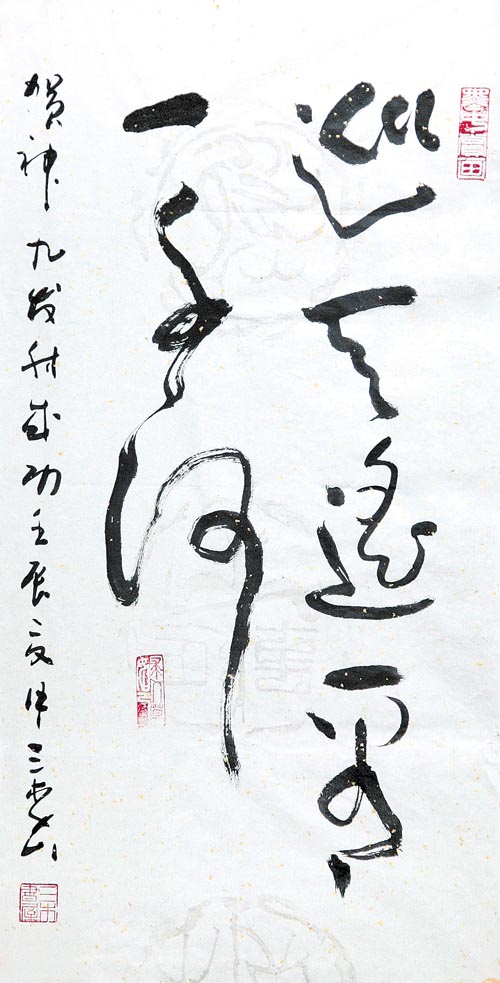 巡天遥看
一千河
贺神九发射成功壬辰夏月三木山